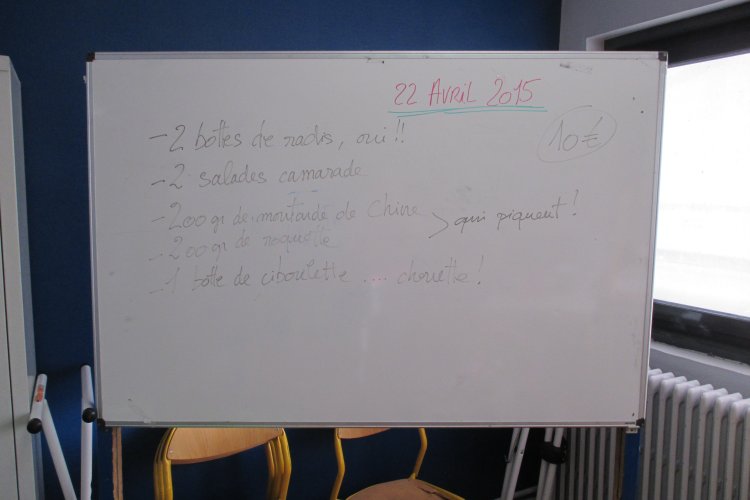 22 Avril 2015
10€
- 2 bottes de radis, oui !!
- 2 salades camarade
- 200 gr de moutarde de Chine
> qui piquent !
- 200 gr de roquette
- 1 botte de ciboulette .... chouette !